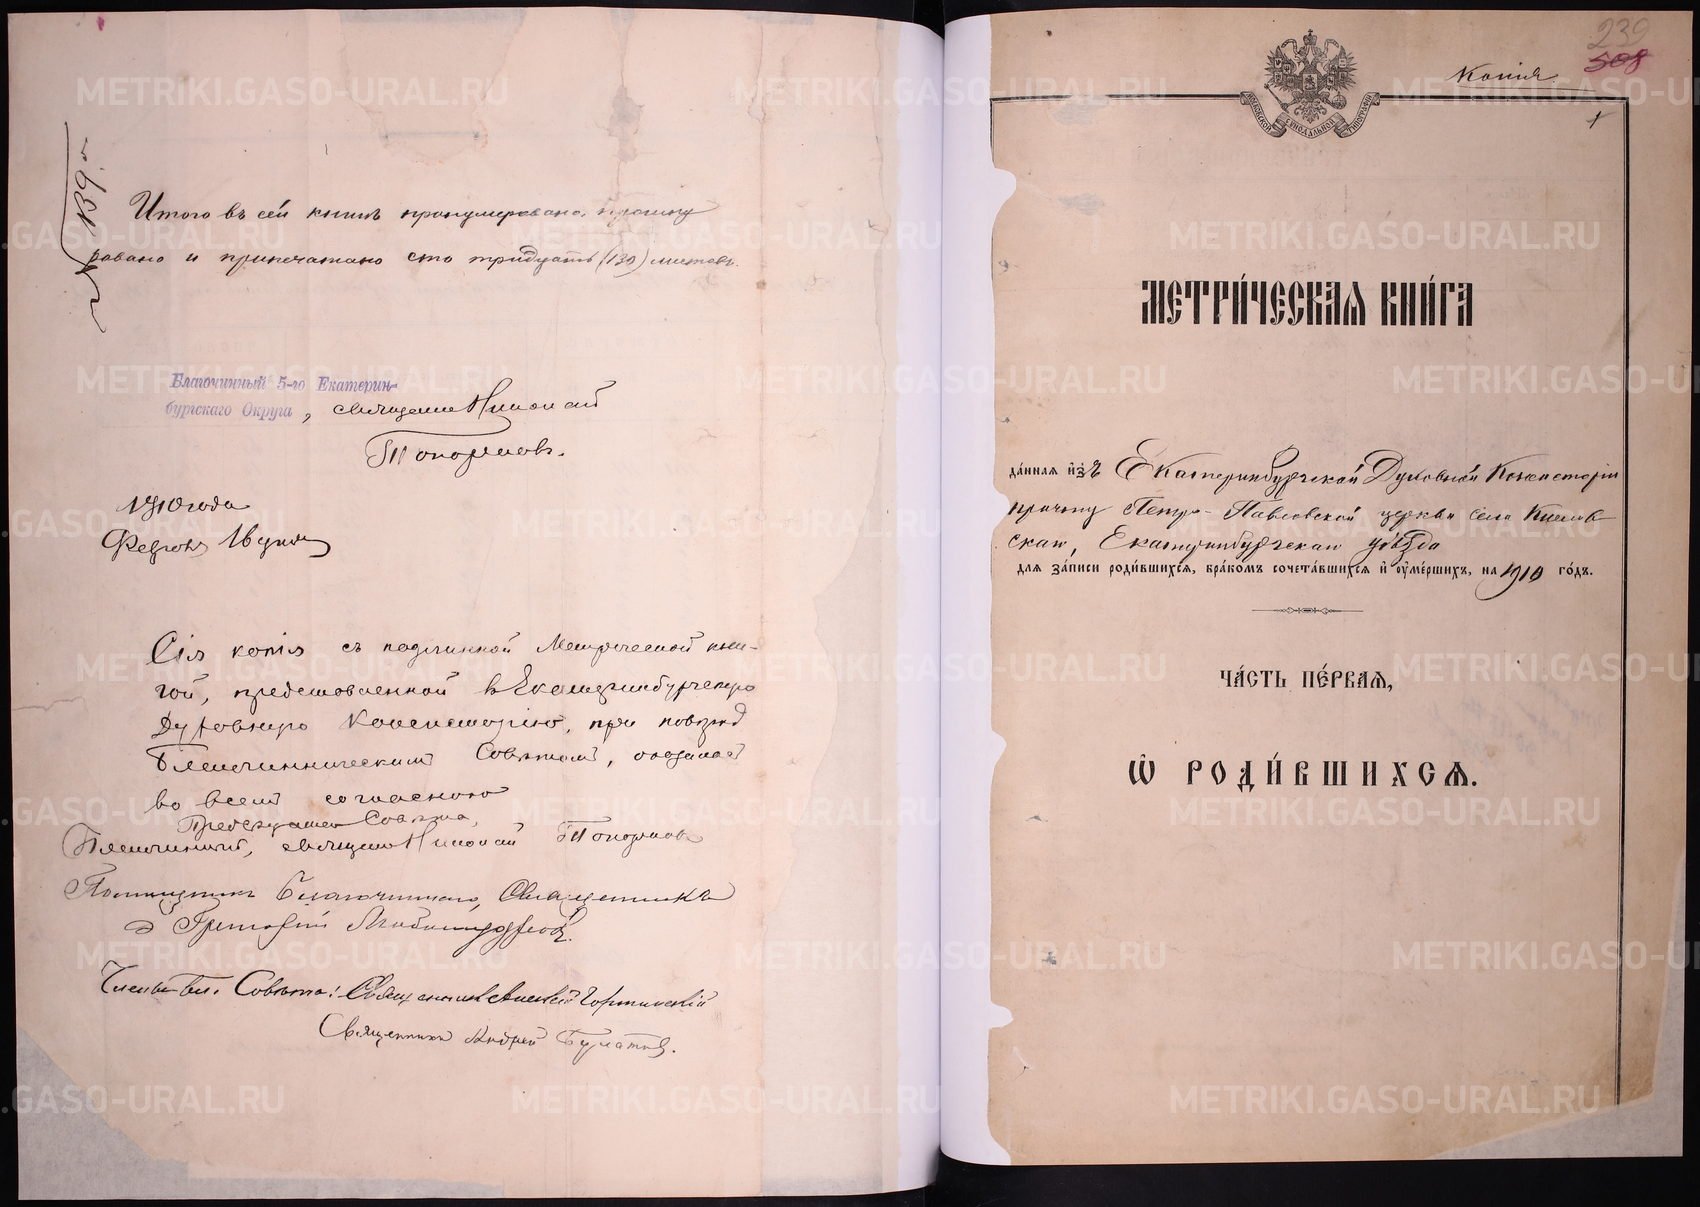 № 139.
Итого въ сей книгѣ пронумеровано, прошну
ровано и припечатано сто тридцать (130) листовъ.
Благочинный 5-го Екатерин-
бургскаго Округа, священ. Николай
Топорковъ.
1910 года
Сія копія съ подлинной Метрической кни-
гой, представленной въ Екатеринбургскую
Духовную Консисторію, при повѣркѣ
Благочинническимъ Совѣтомъ, оказалась
во всемъ согласною
Предсѣдатель Совѣта,
Благочинный, священ. Николай Топорковъ
Помощникъ Благочиннаго, Священникъ
Григорій
Члены Бл. Совѣта: Священникъ Алексѣй
Священникъ Андрей Булатовъ.
239
508
Копія.
1
МОСКОВСКОЙ СѴНОДАЛЬНОЙ ТИПОГРАФІИ
МЕТРИ́ЧЕСКАѦ КНИ́ГА
да́нная и҆зъ Екатеринбургской Духовной Консисторіи
причту Петро-Павловской церкви села
скаго, Екатеринбургскаго уѣзда
для за́писи роди́вшихсѧ, бра́комъ сочета́вшихсѧ и҆ оу҆ме́ршихъ, на 1910 го́дъ.
ЧА́СТЬ ПЕ́РВАѦ,
Ѡ҆ РОДИ́ВШИХСѦ.
METRIKI.GASO-URAL.RU